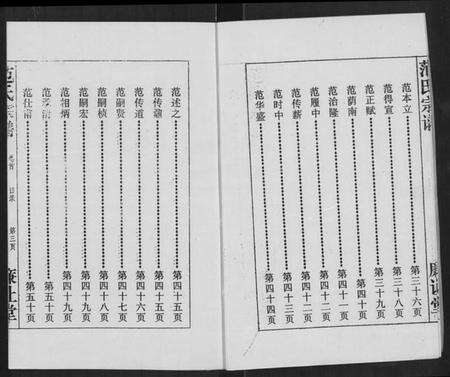 范氏宗谱
廉让堂
范本立 第三十六页
范得宣 第三十八页
范正赋 第三十九页
范荫南 第四十页
范治隆 第四十一页
范履中 第四十二页
范传薪 第四十二页
范时中 第四十三页
范华盛 第四十四页
范述之 第四十五页
范传 第四十五页
范传道 第四十六页
范嗣贤 第四十七页
范嗣桢 第四十八页
范嗣宏 第四十九页
范相炳 第四十九页
范 第五十页
范仕 第五十页
范氏宗谱
卷首
目录
第三页
廉让堂